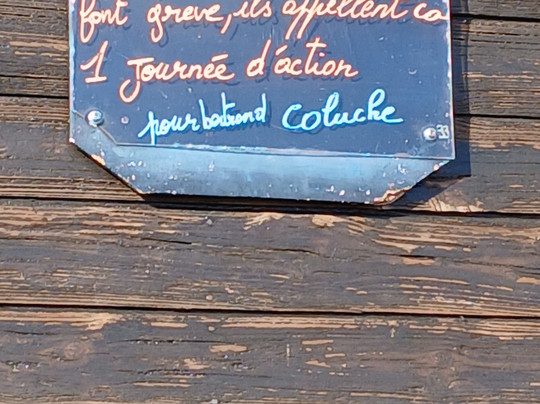 font grève, ils appellent ca
1 Journée d'action
pour bertrand Coluche
33